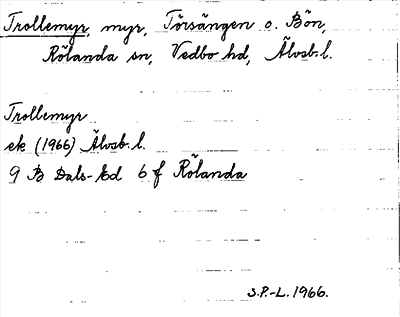 Trollemyr, myr, Törsängen o. Bön,
Rölanda sn, Vedbo hd, Älvsb. l.
Trollemyr
ek (1966) Älvsb. l.
9 B Dals-Ed 6 f Rölanda
S.P.-L. 1966.